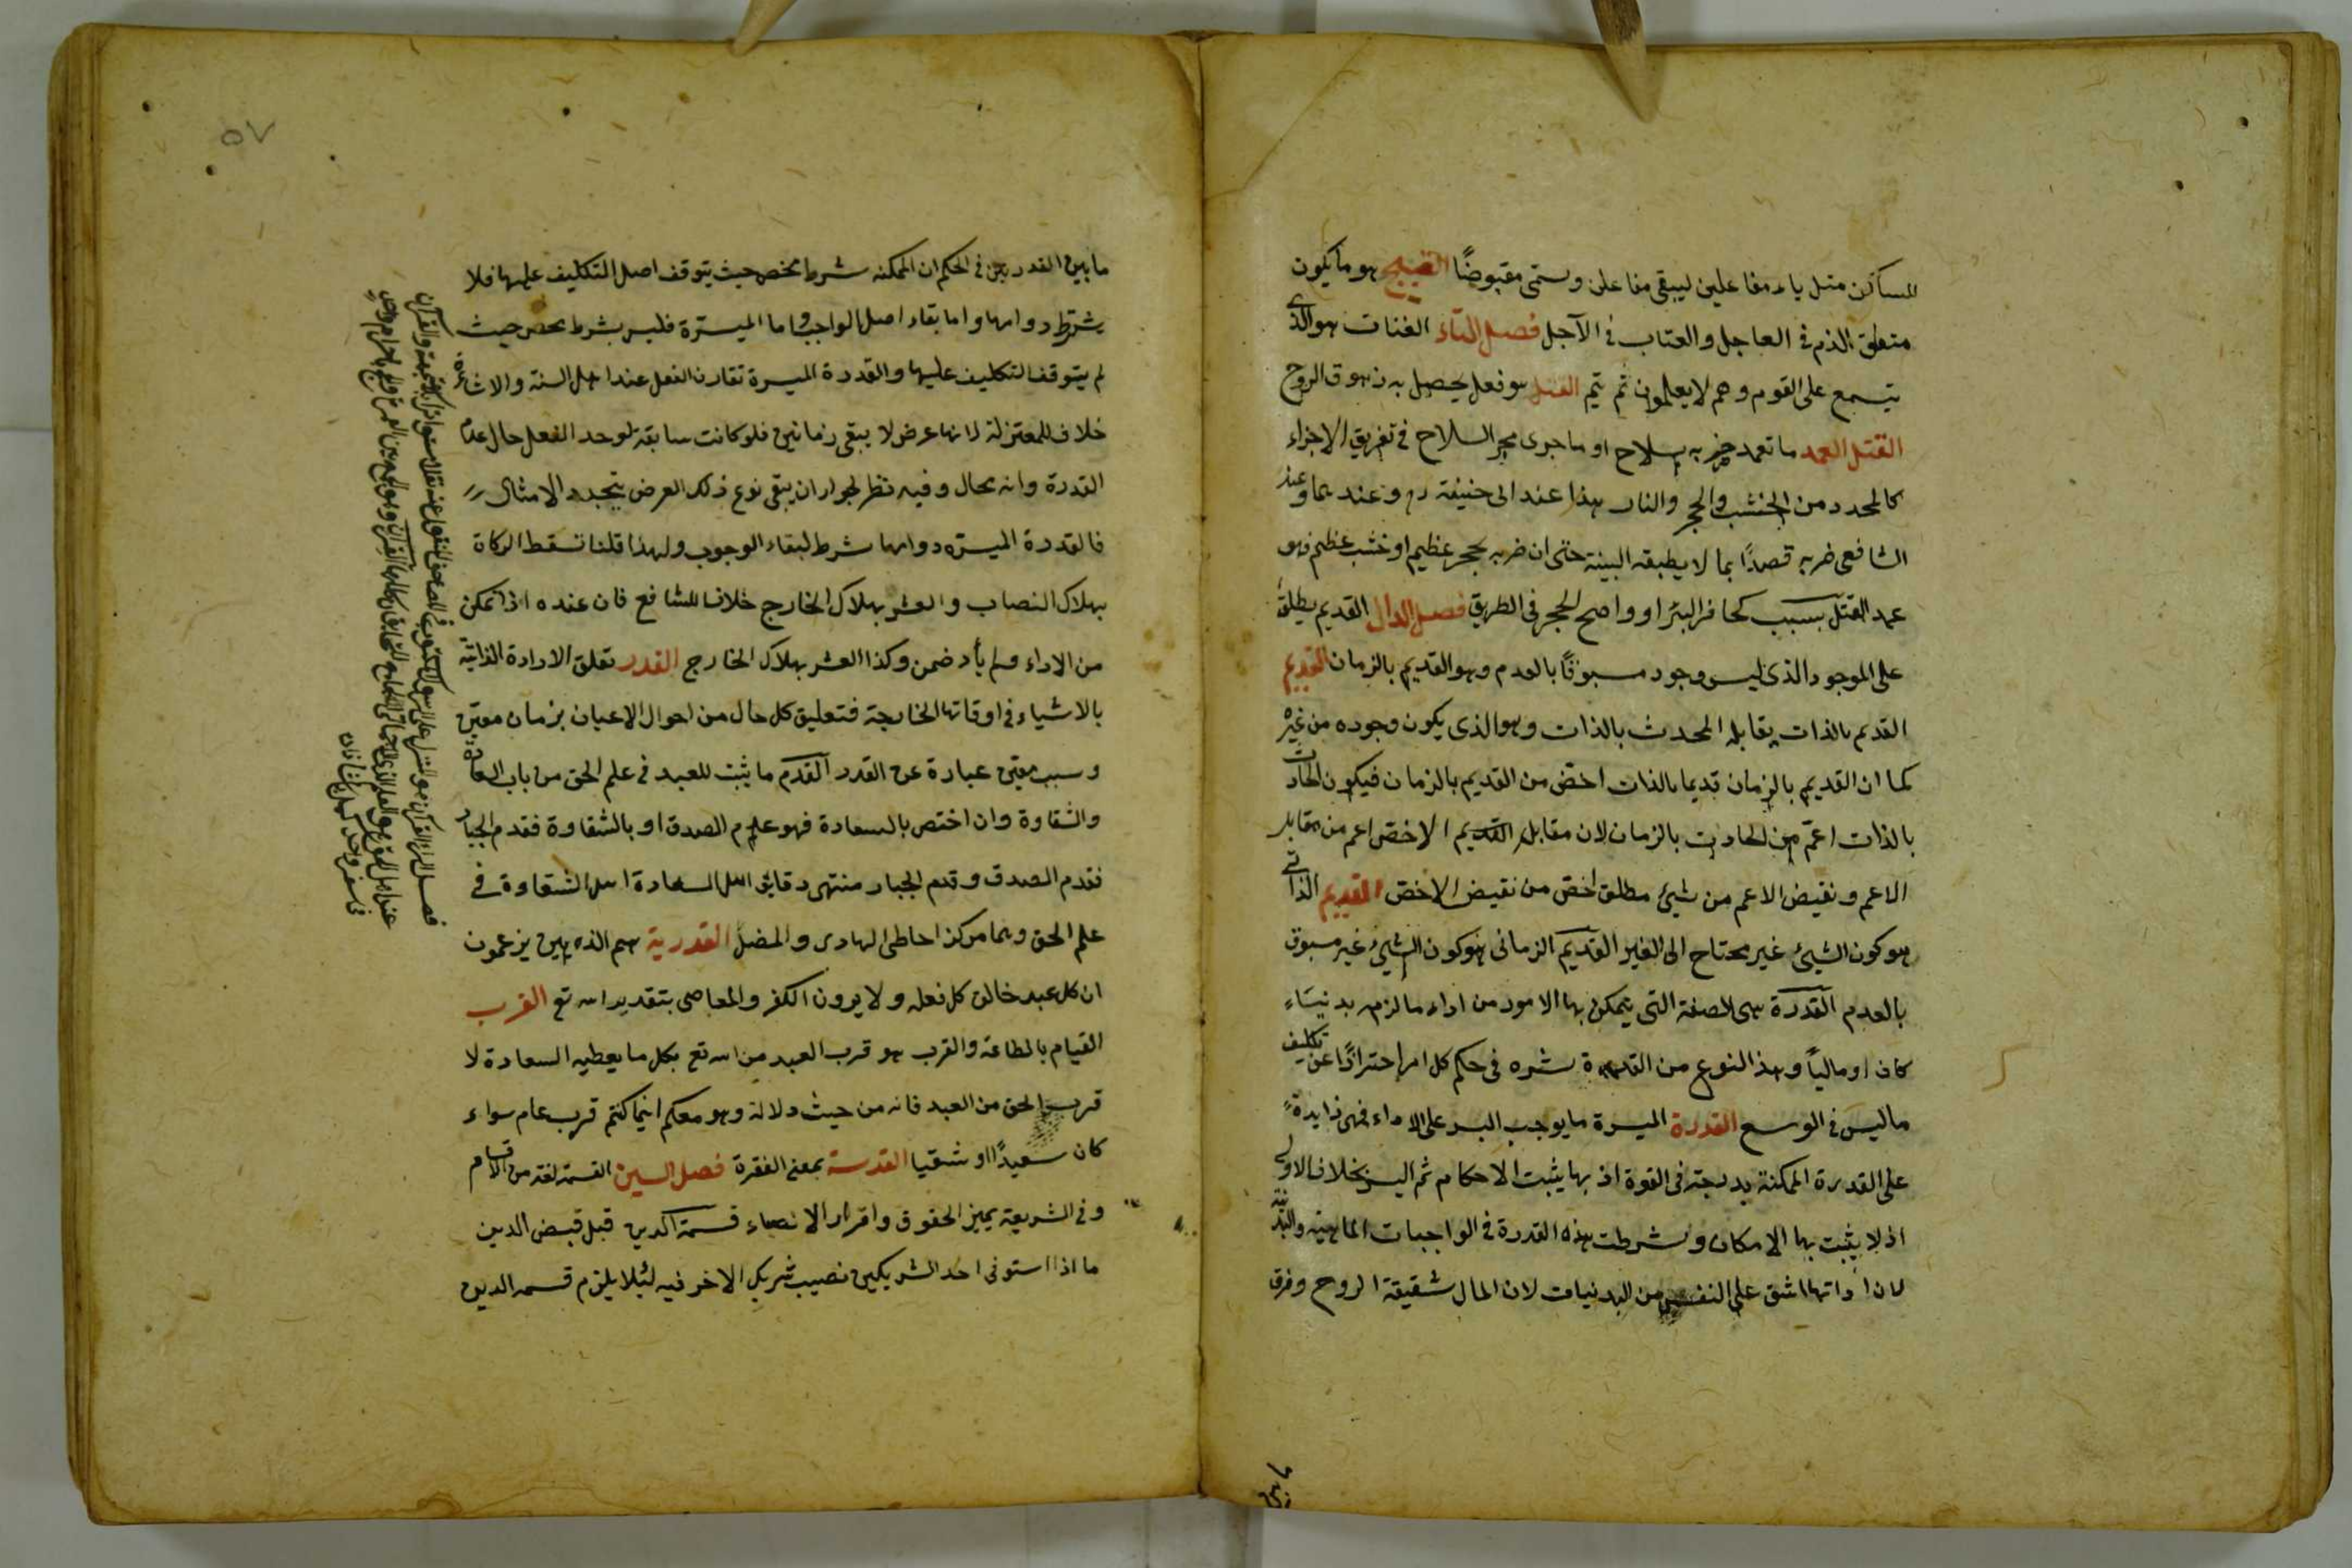 الساكن مثل ياء مفاعلين ليبقى مفاعلن ويسمى مقبوضًا القبيح هو ما يكون
متعلق الذم في العاجل والعتاب في الآجل فصل التاء الفتات هو الذى
يتسمع على القوم وهم لا يعلمون ثم يتم القتل هو فعل يحصل به زهوق الروح
القتل العمد ما تعمد ضربه بسلاح او ما جرى مجر السلاح في تفريق الاجزاء
كالمحدد من الخشب والحجر والنار هذا عند ابى حنيفة رح وعندهما وعند
الشافعى ضربه قصدًا بما لا يطيقه البينة حتى ان ضربه بحجر عظيم او خشب عظيم فهو
عمد القتل بسبب كحافر البئر او واضح الحجر في الطريق فصل الدال القديم يطلق
على الموجود الذى ليس وجود مسبوقًا بالعدم وهو القديم بالزمان القديم
القديم بالذات يقابله المحدث بالذات وهو الذى يكون وجوده من غيره
كما ان القديم بالزمان قديما بالذات اخص من القديم بالزمان فيكون الحادث
بالذات اعم من الحادث بالزمان لان مقابل القديم الاخص اعم من مقابل
الاعم ونقيض الاعم من شيئ مطلق اخص من نقيض الاخص القديم الذاتى
هو كون الشيئ غير محتاج الى الغير القديم الزمانى هو كون الشيئ غير مسبوق
بالعدم القدرة هى الصفة التى يتمكن بها الامور من اداء ما لزمه بدنيًا
كان او ماليًا وهذا النوع من القدرة شره في حكم كل امر احترازًا عن تكليف
ما ليس في الوسع القدرة الميسرة ما يوجب اليسر على الاداء فهى زايدة
على القدرة الممكنة بدرجة في القوة اذ بها يثبت الاحكام ثم اليسر بخلاف الاولى
اذ لا يثبت بها الامكان وشرطت هذه القدرة في الواجبات المالية والبدنية
لان اداتها اشق على النفس من البدنيات لان المال شقيقة الروح وفرق
ما بين
٥٧
ما بين القدرتين في الحكم ان الممكنة شرط محض حيث يتوقف اصل التكليف عليها فلا
يشترط دوامها واما بقاء اصل الواجب واما الميسرة فليس بشرط محض حيث
لم يتوقف التكليف عليها والقدرة الميسرة تقارن الفعل عند اهل السنة والاشاعرة
خلاف للمعتزلة لانها عرض لا يبقى زمانين فلو كانت سابقة لوحد الفعل حال عدم
القدرة وانه محال وفيه نظر لجواز ان يبقى نوع ذلك العرض بتجدد الامثال
فالقدرة الميسرة دوامها شرط لبقاء الوجوب ولهذا قلنا تسقط الزكاة
بهلاك النصاب والعشر بهلاك الخارج خلافا للشافع فان عنده اذا تمكن
من الاداء ولم يأد ضمن وكذا العشر بهلاك الخارج القدر تعلق الارادة الذاتية
بالاشياء في اوقاتها الخارجة فتعليق كل حال من احوال الاعيان بزمان معين
وسبب معين عبارة عن القدر القدم ما يثبت للعبد في علم الحق من باب السعادة
والشقاوة وان اختص بالسعادة فهو علم الصدق او بالشقاوة فقدم الجبار
فقدم الصدق وقدم الجبار منتهى دقائق اهل السعادة اهل الشقاوة في
علم الحق وهما مركز احاطى الهادى والمضل القدرية هم الذين يزعمون
ان كل عبد خالق كل فعله ولا يرون الكفر والمعاصى بتقدير الله تع القرب
القيام بالطاعة والقرب هو قرب العبد من الله تع بكل ما يعطيه السعادة لا
قرب الحق من العبد فانه من حيث دلالة وهو معكم اينما كنتم قرب عام سواء
كان سعيدًا او شقيا القدسة بمعنى الفقرة فصل السين القسمة لغة من الاقسام
وفي الشريعة يميز الحقوق وافراز الانصباء قسمة الدين قبل قبض الدين
ما اذا استوفى احد الشريكين نصيب شريك الاخر فيه لئلا يلزم قسمه الدين